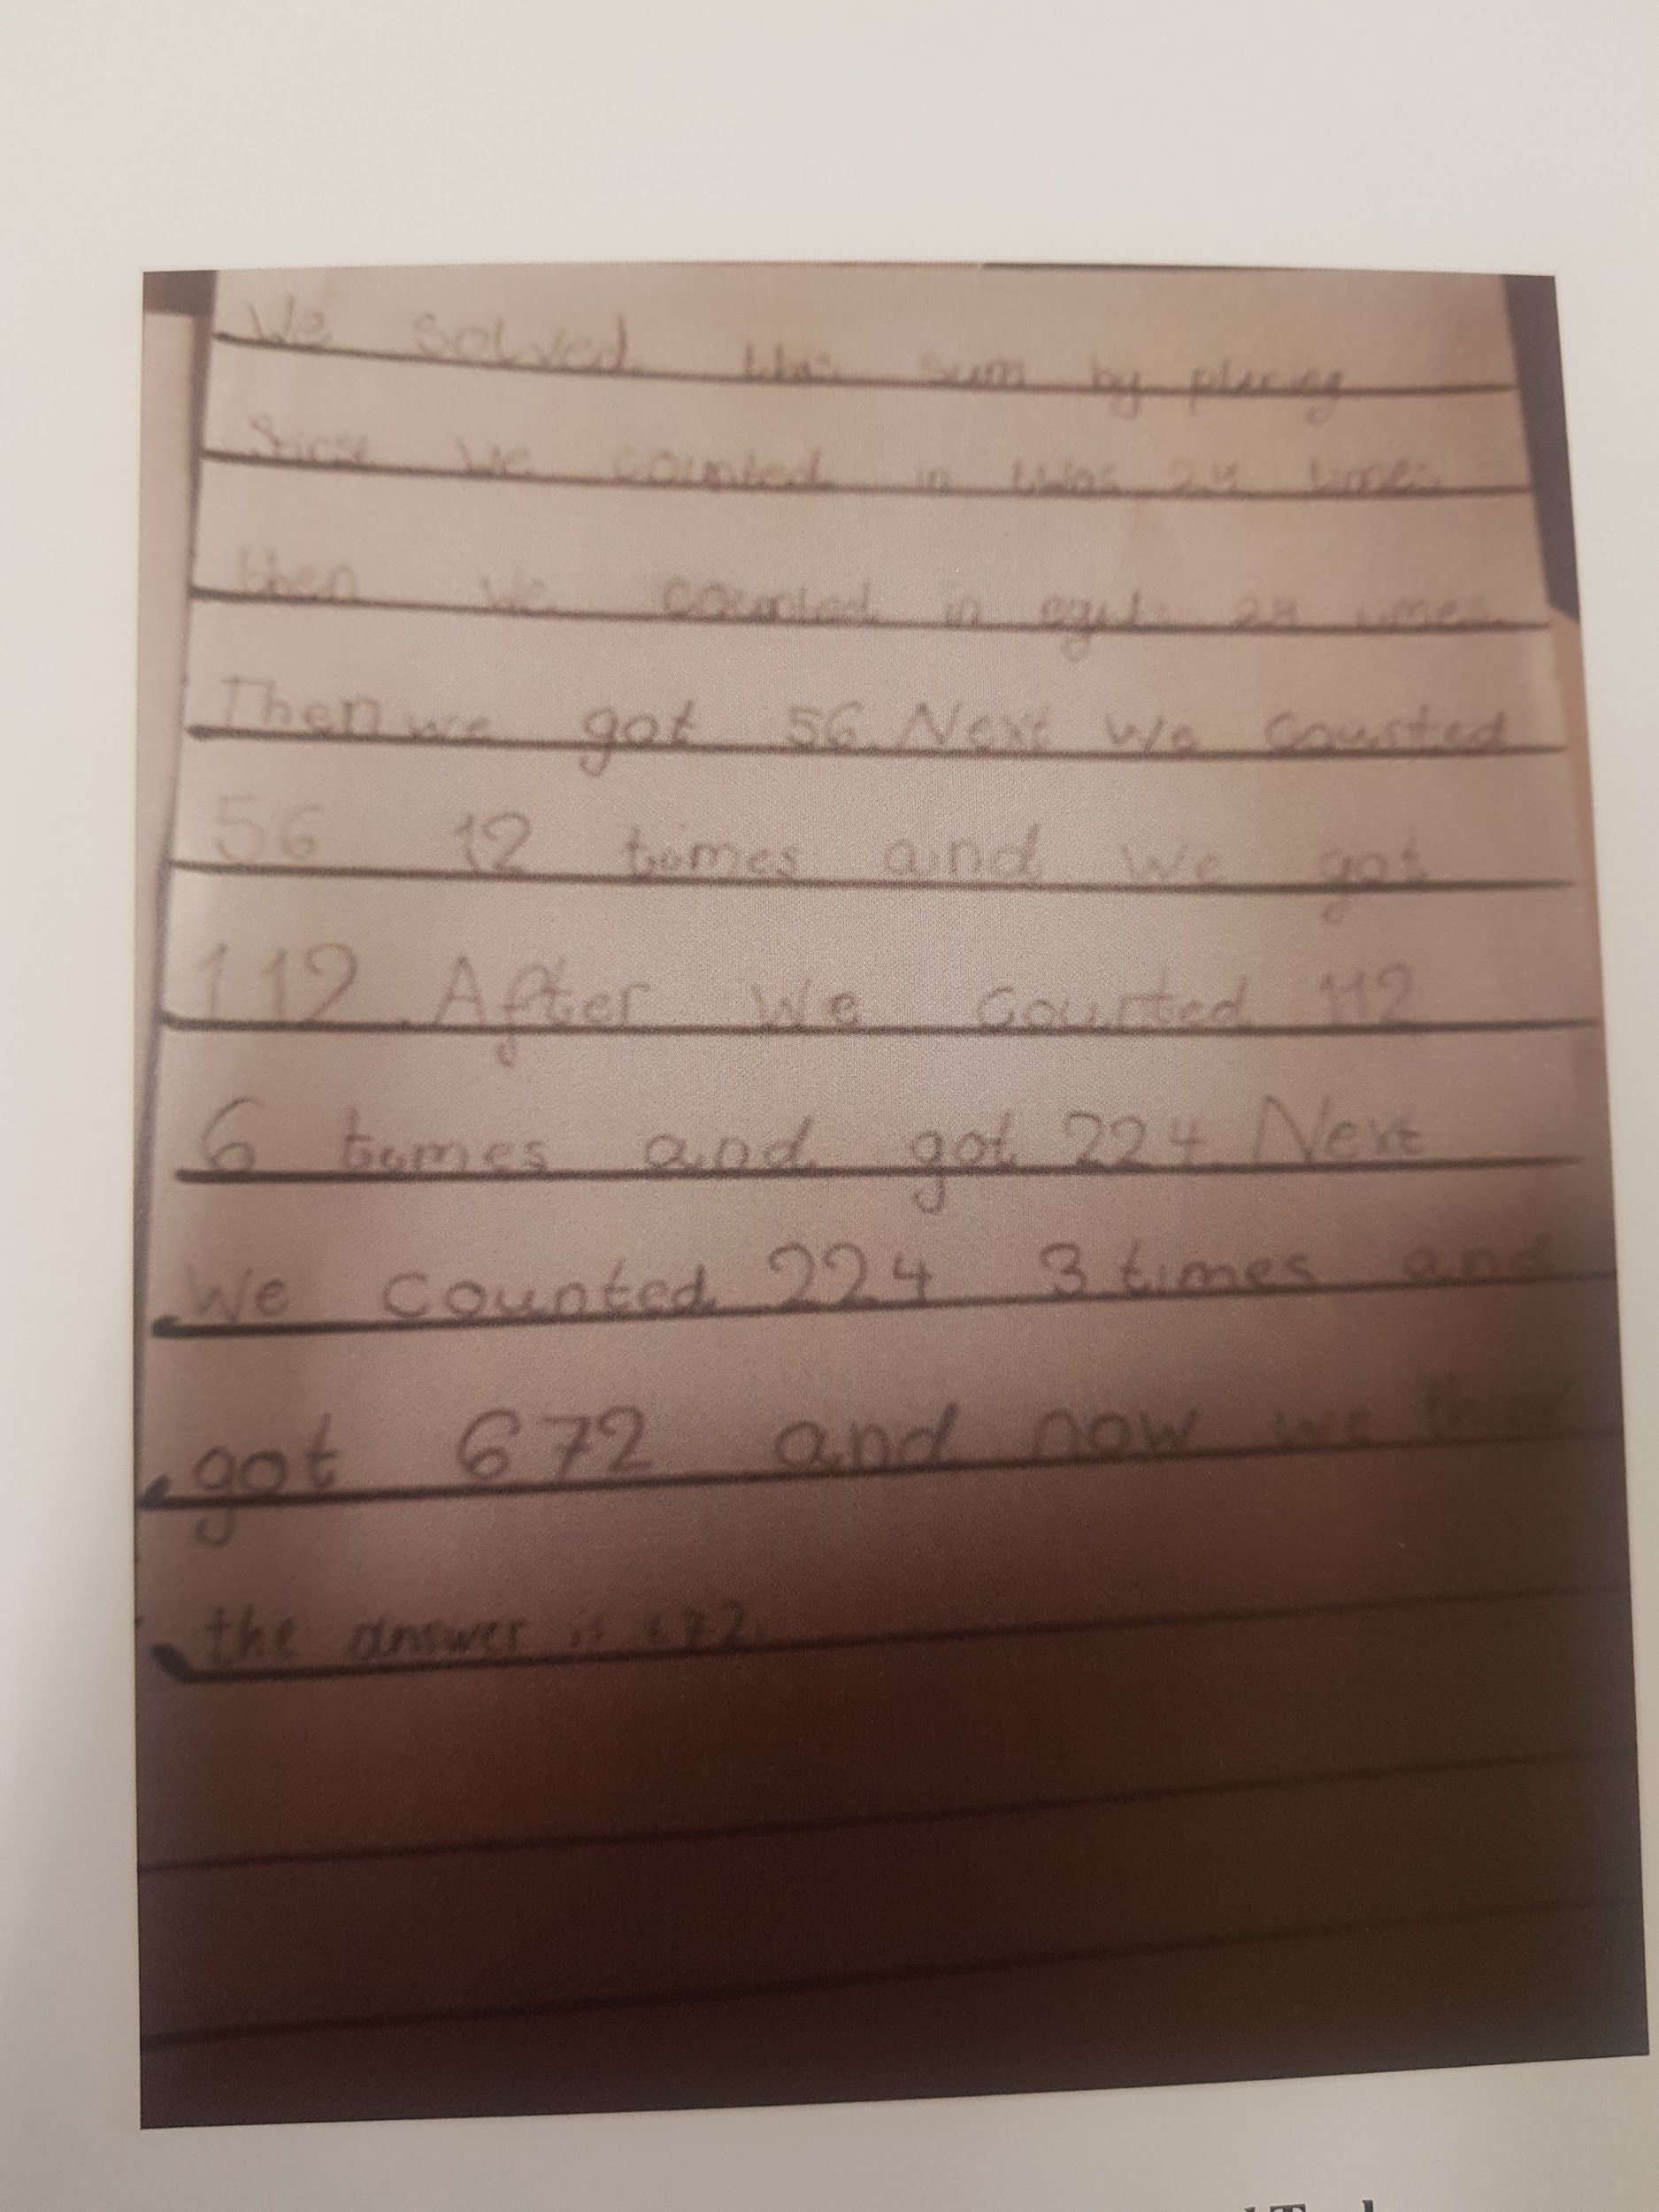 We solved this sum by
First we counted in twos 24 times
then we counted in 24 times
Then we got 56 Next we counted
56 12 times and we got
112 After we counted 112
6 times and got 224 Next
We counted 224 3 times and
got 672 and now we think
the answer is 672